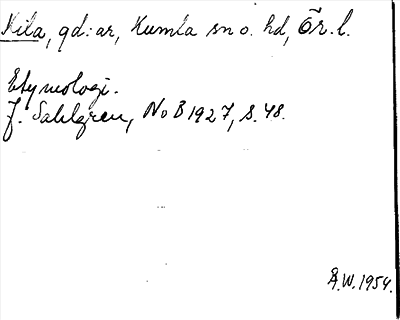 Kila, gd:ar, Kumla sn o. hd, Ör. l.
Etymologi.
J. Sahlgren, NoB 1927, s. 48.
Å.W. 1954.